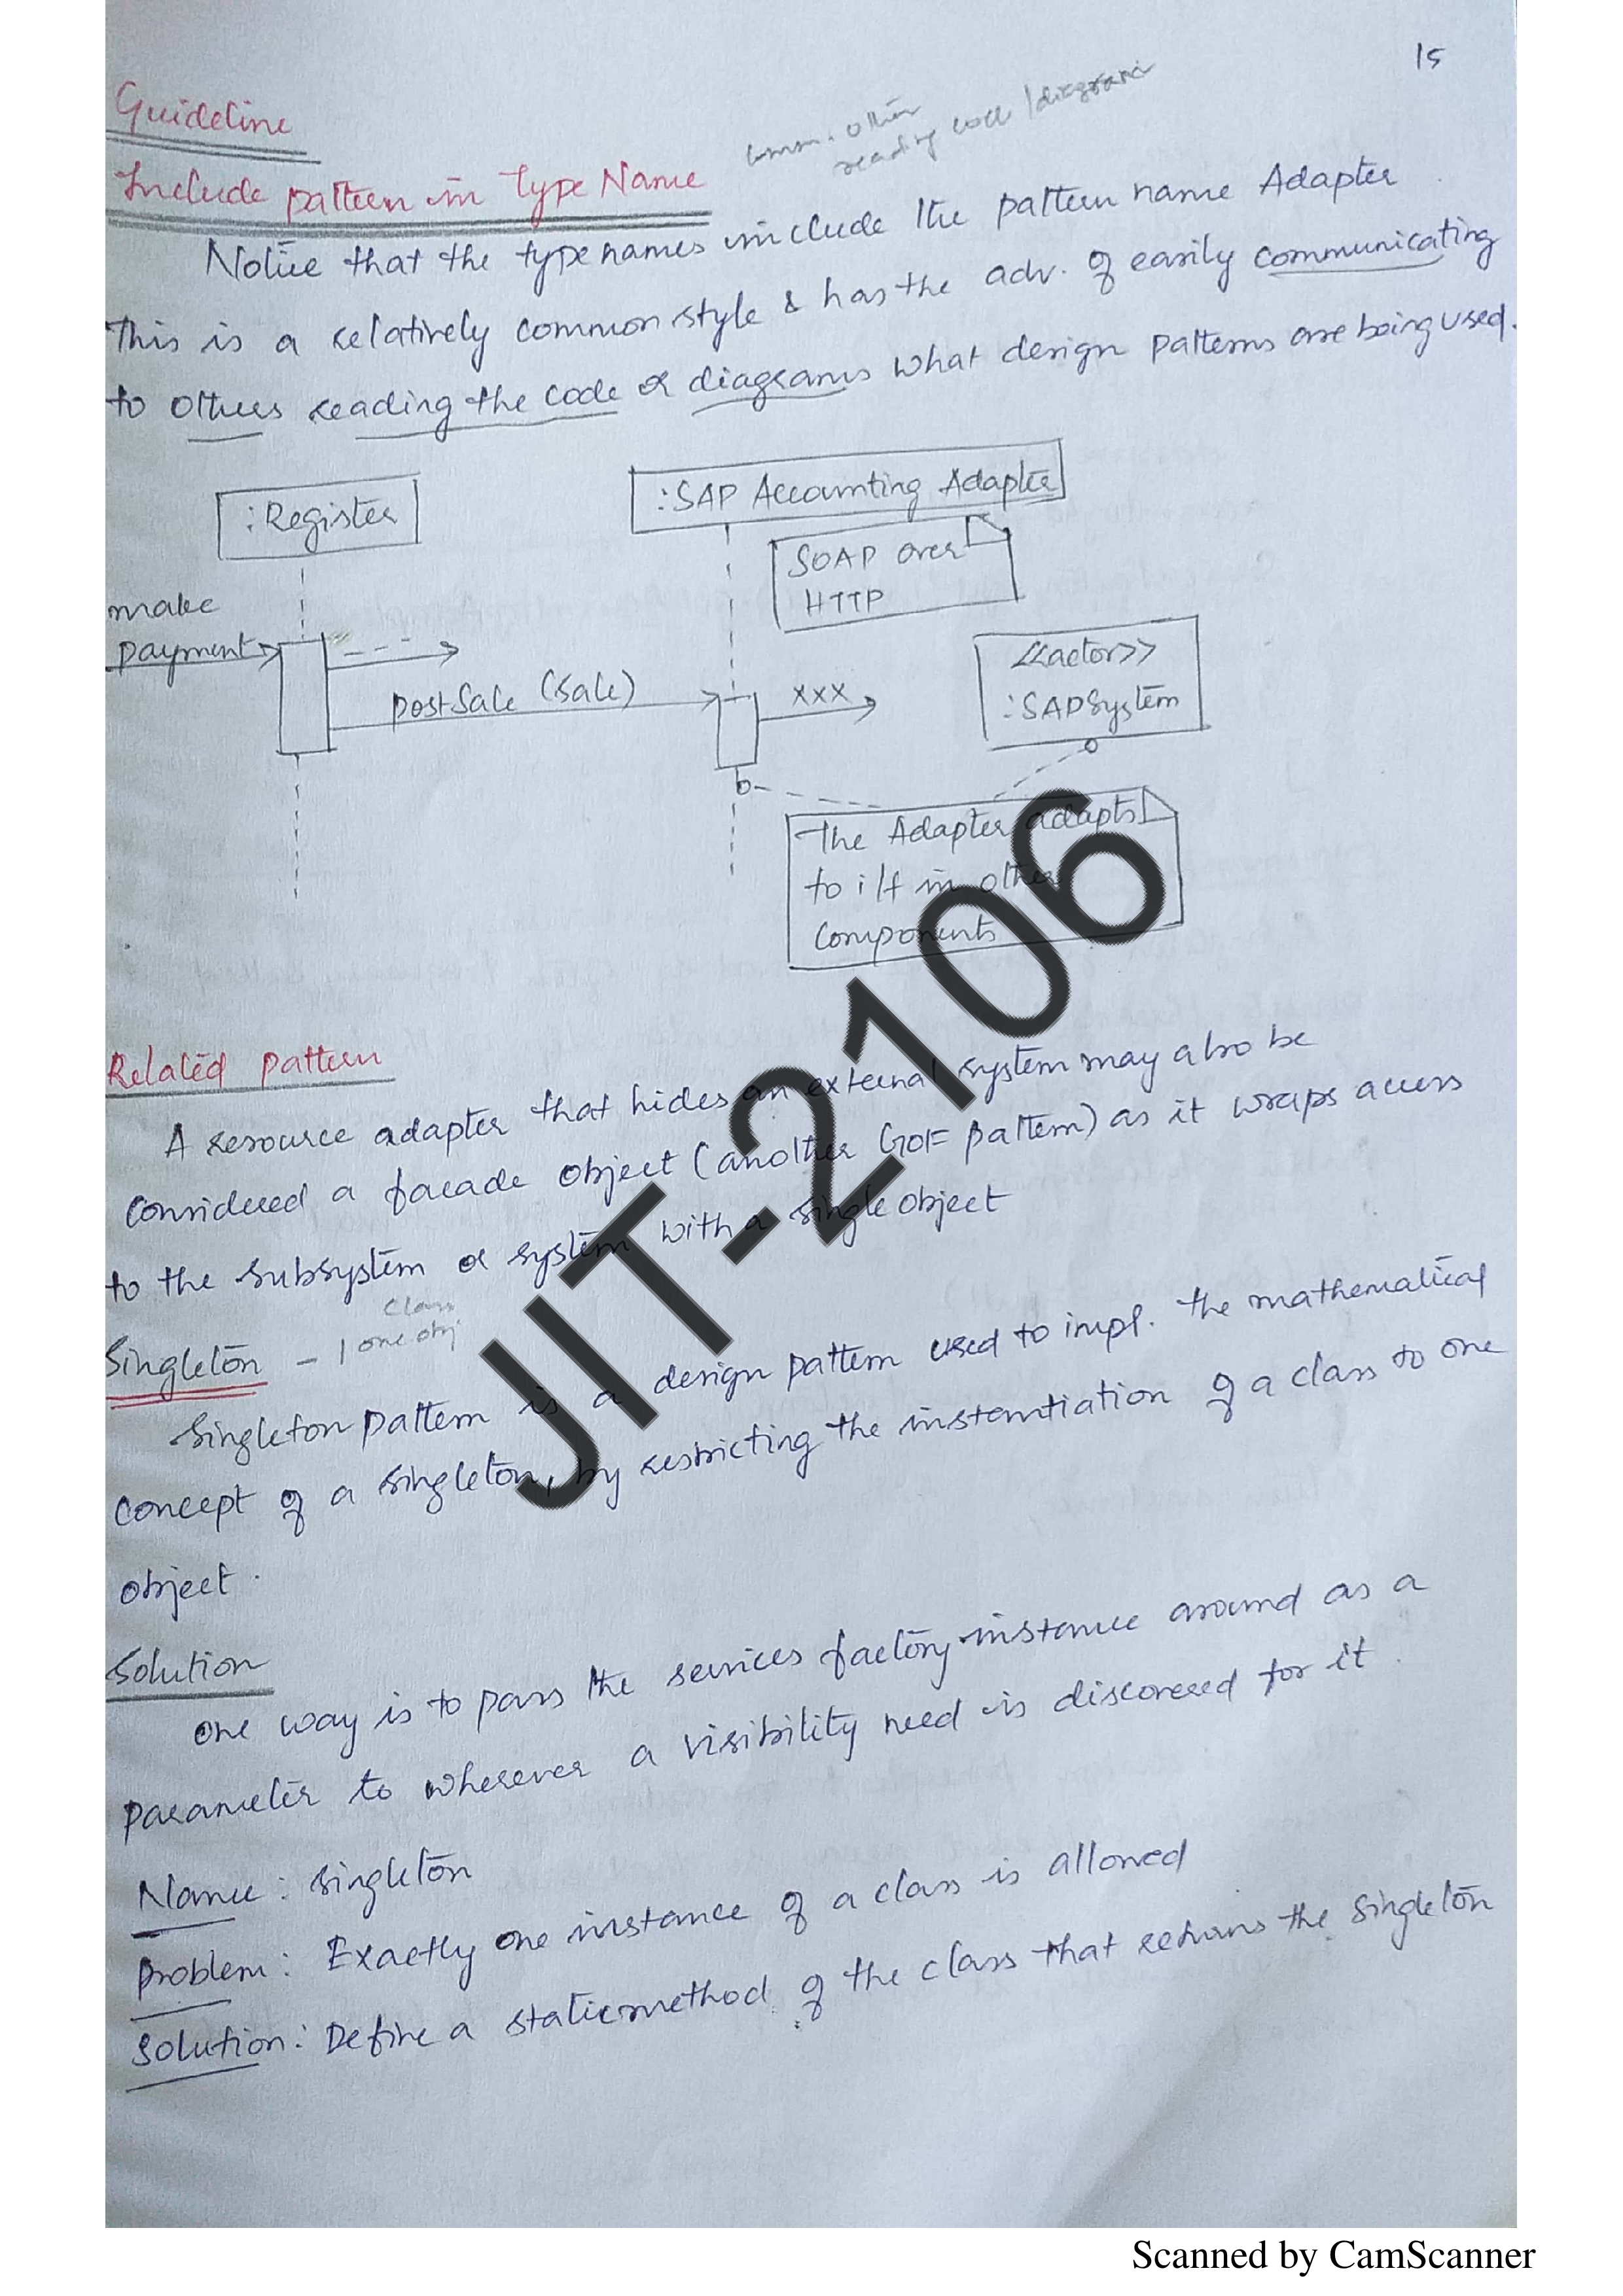 15
Guideline
comm. other
reading code / diagrams
Include pattern in Type Name
Notice that the type names include the pattern name Adapter
This is a relatively common style & has the adv. of easily communicating
to others reading the code or diagrams what design patterns are being used.
:Register
:SAP Accounting Adapter
SOAP over
HTTP
make
payment
postSale (Sale)
xxx
<<actor>>
:SAPSystem
The Adapter adapts
to i/f in other
components
Related pattern
A resource adapter that hides an external system may also be
considered a facade object (another GOF pattern) as it wraps access
to the subsystem or system with a single object
class
Singleton - 1 one obj
Singleton pattern is a design pattern used to impl. the mathematical
concept of a singleton, by restricting the instantiation of a class to one
object.
Solution
One way is to pass the services factory instance around as a
parameter to wherever a visibility need is discovered for it.
Name: Singleton
Problem: Exactly one instance of a class is allowed
Solution: Define a static method of the class that returns the singleton
JIT-2106
Scanned by CamScanner